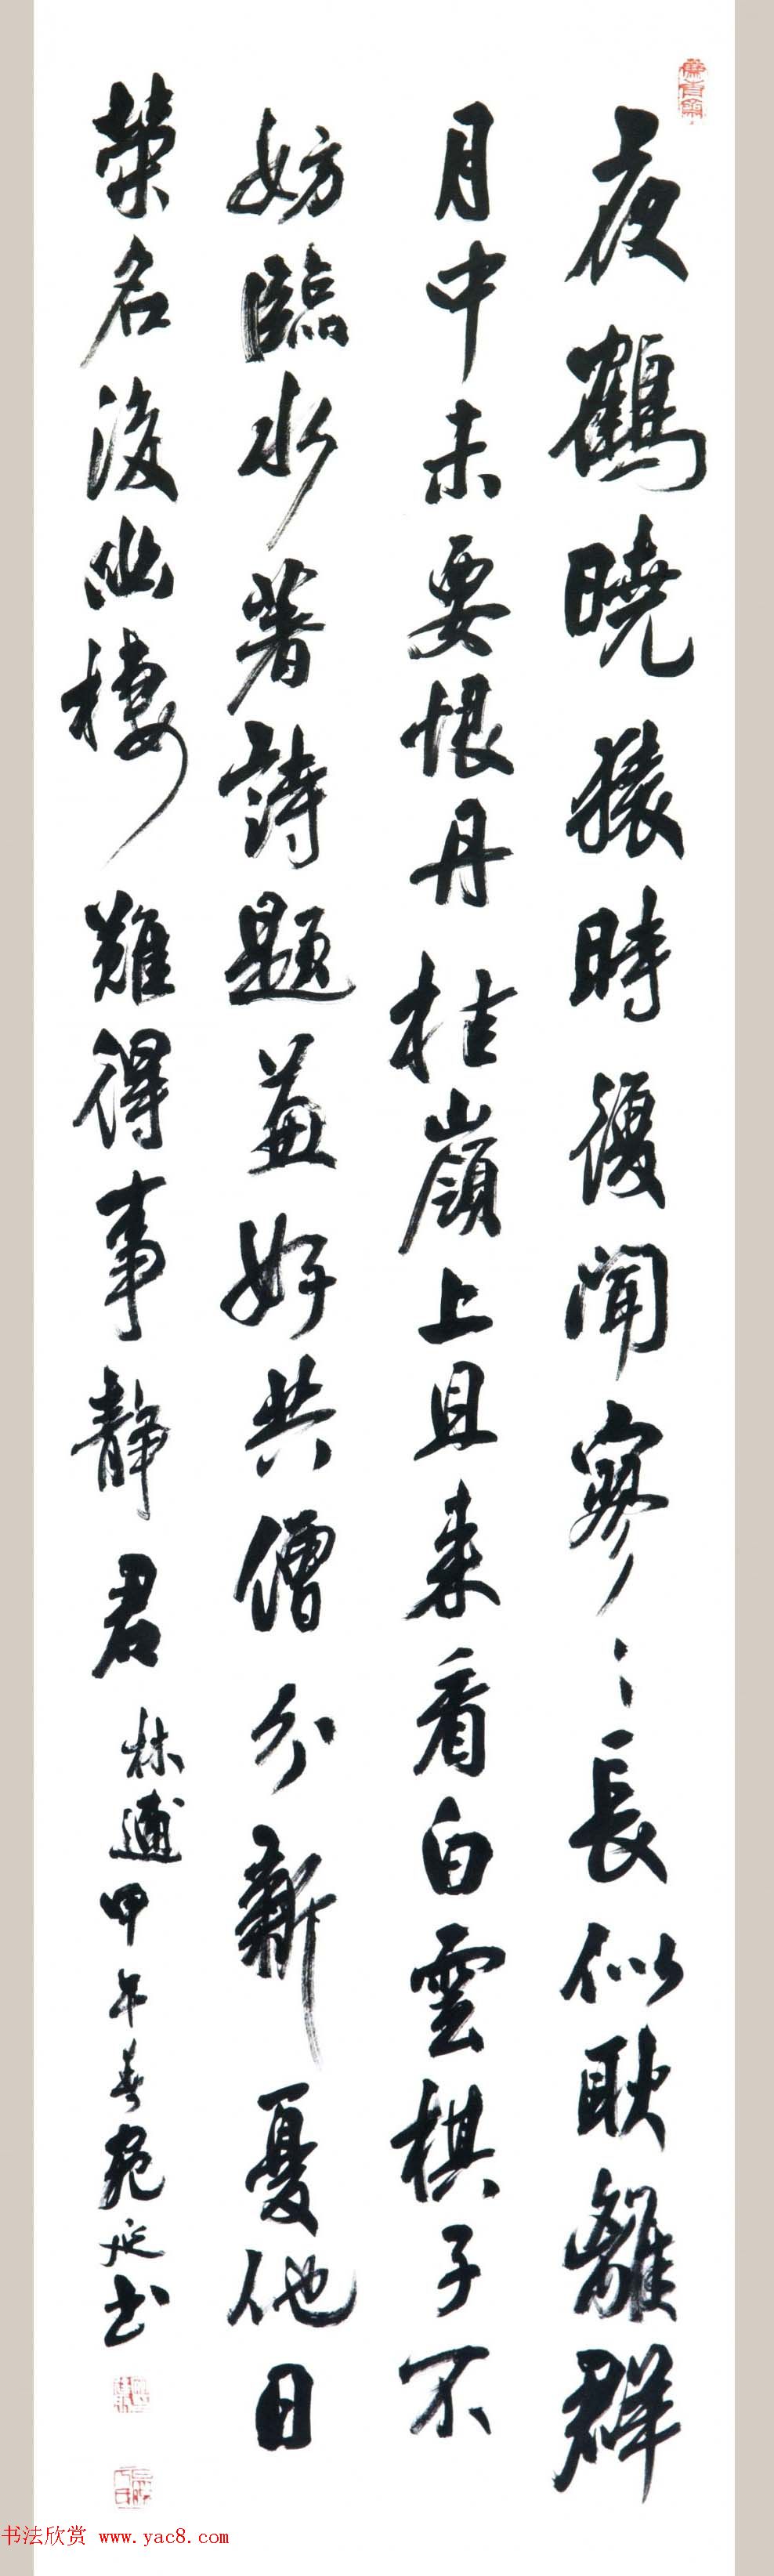 夜鶴曉猿時復聞寥〻長似耿離群
月中未要恨丹桂嶺上且来看白雲棋子不
妨臨水著詩題兼好共僧分新憂他日
榮名後幽棲難得事静君
林逋甲午春 书
书法欣赏 www.yac8.com